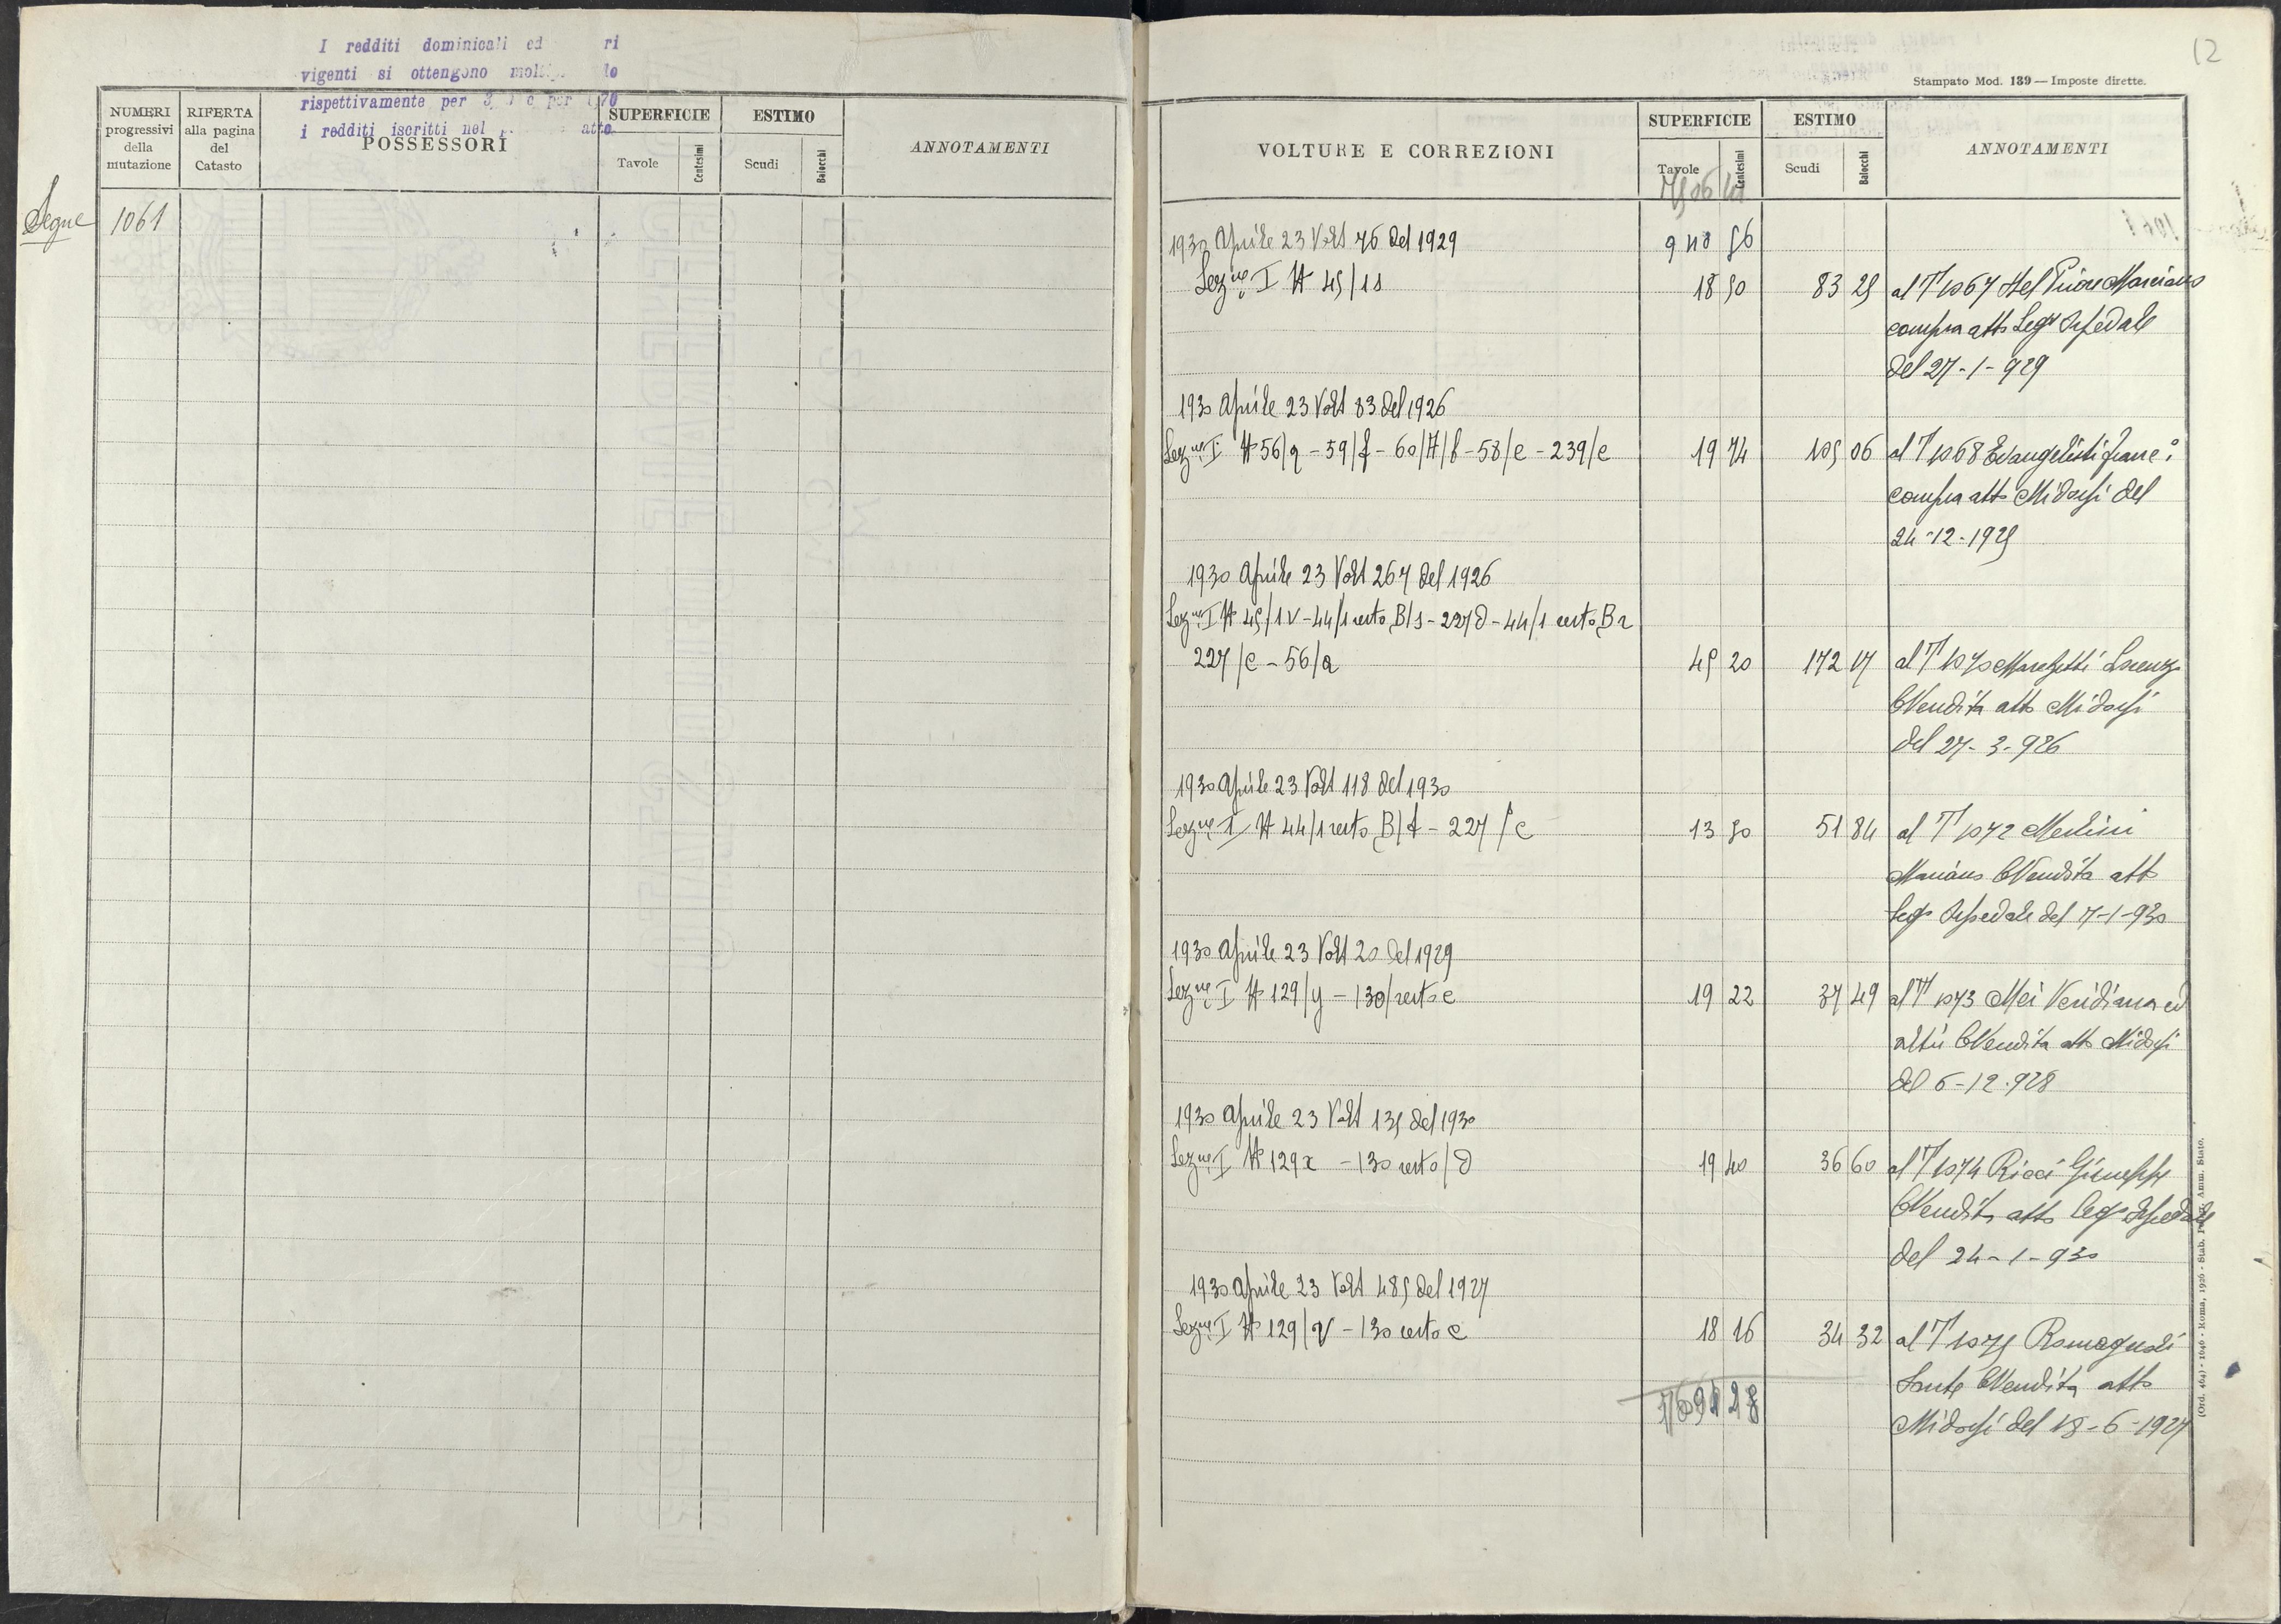 I redditi dominicali ed ri
vigenti si ottengono lo
rispettivamente per 3, per 70
i redditi iscritti nel atto.
NUMERI progressivi della mutazione
RIFERTA alla pagina del Catasto
POSSESSORI
SUPERFICIE
Tavole
Centesimi
ESTIMO
Scudi
Baiocchi
ANNOTAMENTI
Segue 1061
12
Stampato Mod. 139 — Imposte dirette.
VOLTURE E CORREZIONI
SUPERFICIE
Tavole
Centesimi
ESTIMO
Scudi
Baiocchi
ANNOTAMENTI
1930 Aprile 23 Volt 76 del 1929 9 48 56
Sez.ne I N 45/1s 18 50 83 25 al N 1067 Del Priore Marciano
compra atto Segr Ospedale
del 27-1-929
1930 Aprile 23 Volt 83 del 1926
Sez.ne I N 56/q - 59/f - 60/A/f - 58/e - 239/e 19 74 105 06 al N 1068 Evangelisti Franc:
compra atto Midossi del
24-12-1925
1930 Aprile 23 Volt 267 del 1926
Sez.ne I N 45/1v - 44/1 resto B/s - 227/d - 44/1 resto B r
227/c - 56/a 45 20 172 17 al N 1070 Marchetti Lorenzo
C Vendita atto Midossi
del 27-3-926
1930 Aprile 23 Volt 118 del 1930
Sez.ne I N 44/1 resto B/t - 227/c 13 50 51 84 al N 1072 Merlini
Mariano C Vendita atto
Segr Ospedale del 7-1-930
1930 Aprile 23 Volt 20 del 1929
Sez.ne I N 129/y - 130/resto e 19 22 37 49 al N 1073 Mei Veridiana ed
altri C Vendita atto Midossi
del 6-12-928
1930 Aprile 23 Volt 135 del 1930
Sez.ne I N 129 x - 130 resto/d 19 40 36 60 al N 1074 Ricci Giuseppe
C Vendita atto Segr Ospedale
del 24-1-930
1930 Aprile 23 Volt 485 del 1927
Sez.ne I N 129/v - 130 resto c 18 16 34 32 al N 1075 Romagnoli
Sante C Vendita atto
Midossi del 18-6-1927